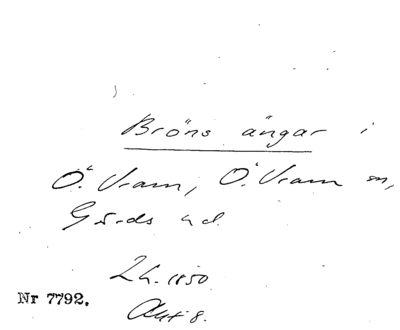 Bröns ängar i
Ö. Vram, Ö. Vram sn,
Gärds hd.
Lh. 1850
Nr 7792.
Akt 8.